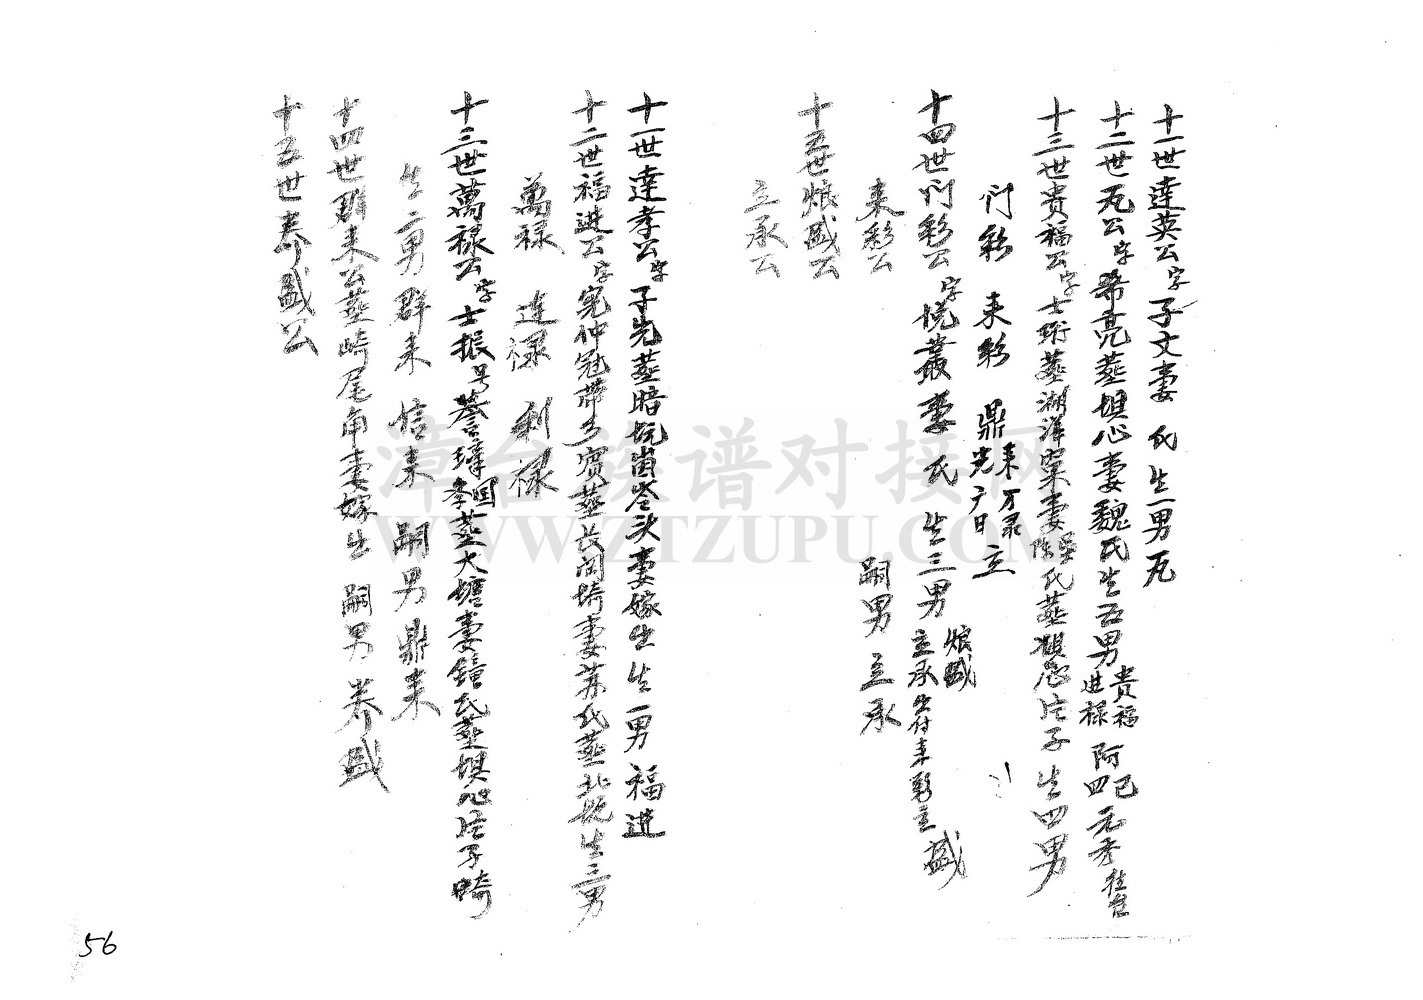 十一世達英公字子文妻 氏生一男瓦
十二世瓦公字希亮葬埧心妻魏氏生五男貴福進禄阿四已元
十三世貴福公字士珩葬湖洋窠妻陈氏葬 子生四男
们彩 来彩 鼎来 立
十四世们彩公字悦叢妻 氏 生三男烺盛立承出付来彩立盛
来彩公 嗣男立承
十五世烺盛公
立承公
十一世達孝公字子先葬暗坑崗岺头妻嫁出生一男福進
十二世福進公字寃仲冠带乡賓葬長 埼妻苏氏葬北坑生三男
萬禄 連禄 利禄
十三世萬禄公字士振号 葬大塘妻鐘氏葬埧心庄子崎
生二男群来 信来 嗣男鼎来
十四世群来公葬崎尾角妻嫁出 嗣男养盛
十五世养盛公
56
潭台族谱对接网
WWW.ZTZUPU.COM